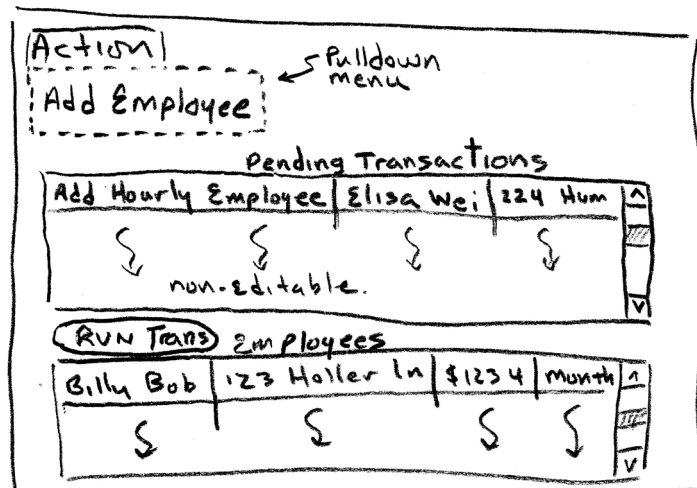 Action
Pulldown
menu
Add Employee
Pending Transactions
Add Hourly Employee Elisa Wei 224 Hum
non-editable.
RUN Trans Employees
Billy Bob 123 Holler ln $1234 month